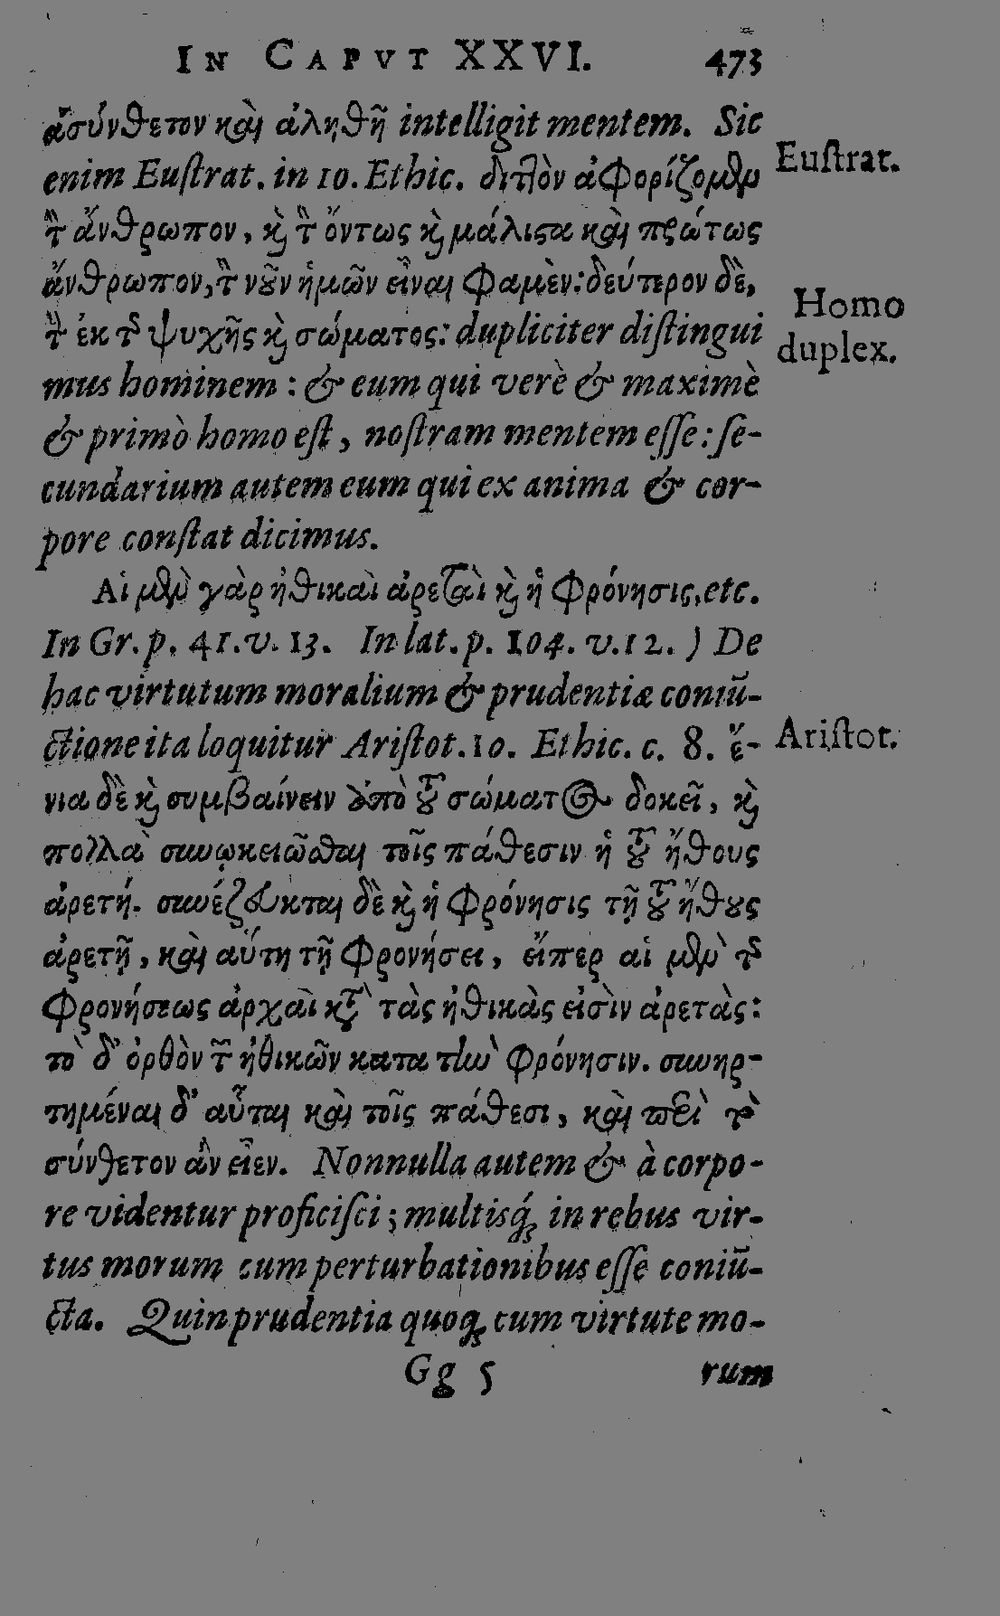 IN CAPVT XXVI. 473
ἀσύνθετον καὶ ἀληθῆ intelligit mentem. Sic
enim Euſtrat. in 10. Ethic. διτlὸν ἀφορίζομλμ
Euſtrat.
τ̀ ἄνθρωπον, κ̀ τ̀ ὄντως κ̀ μάλιϛα καὶ πρώτως
ἄνθρωπον, τ̀ νȣ͂ν ἡμῶν εἶναι φαμὲν: δεύτερον δὲ,
Homo
τ̀ ἐκ τ͂ ψυχῆς κ̀ σώματος: dupliciter diſtingui
duplex.
mus hominem : & eum qui verè & maximè
& primò homo eſt, noſtram mentem eſſe: ſe-
cundarium autem eum qui ex anima & cor-
pore conſtat dicimus.
Αἱ μὲν γὰρ ἠθικαὶ ἀρεταὶ κ̀ ἡ φρόνησις, etc.
In Gr. p. 41. v. 13. In lat. p. 104. v. 12. ) De
hac virtutum moralium & prudentiæ coniũ-
ctione ita loquitur Ariſtot. 10. Ethic. c. 8. ἔ-
Ariſtot.
νια δὲ κ̀ συμβαίνειν ἀπὸ τȣ͂ σώματος δοκεῖ, κ̀
πολλὰ συνῳκειῶσθαι τοῖς πάθεσιν ἡ τȣ͂ ἤθους
ἀρετή. συνέζευκται δὲ κ̀ ἡ φρόνησις τῇ τȣ͂ ἤθȣς
ἀρετῇ, καὶ αὕτη τῇ φρονήσει, εἴπερ αἱ μὲν τ͂
φρονήσεως ἀρχαὶ κτ̀ τὰς ἠθικὰς εἰσὶν ἀρετὰς:
τὸ δ' ὀρθὸν τ͂ ἠθικῶν κατα τὴν φρόνησιν. συνηρ-
τημέναι δ' αὗται καὶ τοῖς πάθεσι, καὶ περὶ τὸ
σύνθετον ἂν εἶεν. Nonnulla autem & à corpo-
re videntur proficiſci; multisq́; in rebus vir-
tus morum cum perturbationibus eſſe coniũ-
cta. Quin prudentia quoq; cum virtute mo-
Gg 5 rum